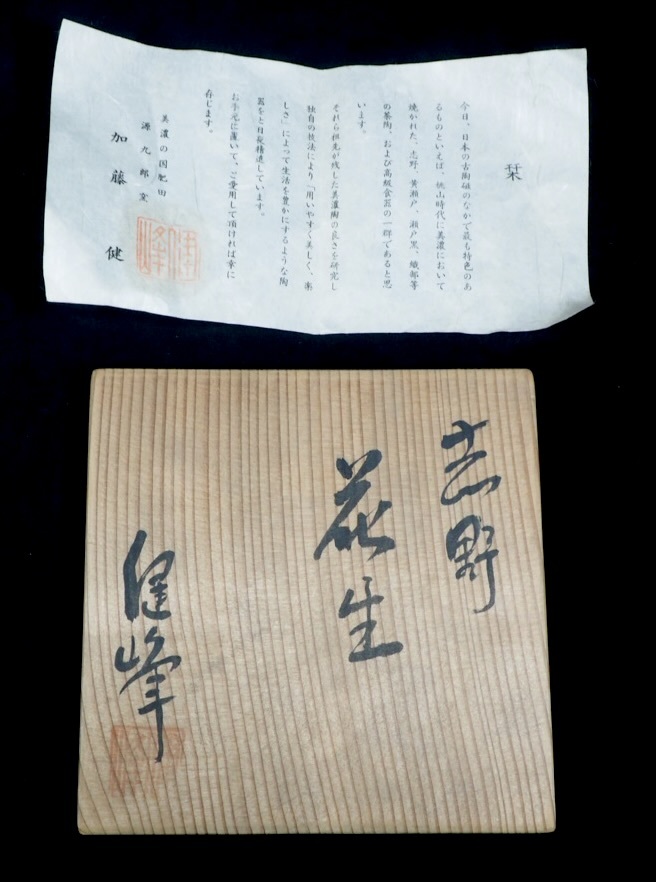 栞
今日、日本の古陶磁のなかで最も特色のあ
るものといえば、桃山時代に美濃において
焼かれた、志野、黄瀬戸、瀬戸黒、織部等
の茶陶、および高級食器の一群であると思
います。
それら祖先が残した美濃陶の良さを研究し
独自の技法により「用いやすく美しく、楽
しさ」によって生活を豊かにするような陶
器をと日夜精進しています。
お手元に置いて、ご愛用して頂ければ幸に
存じます。
美濃の国肥田
源九郎窯
加藤 健
志野
花生
健峰